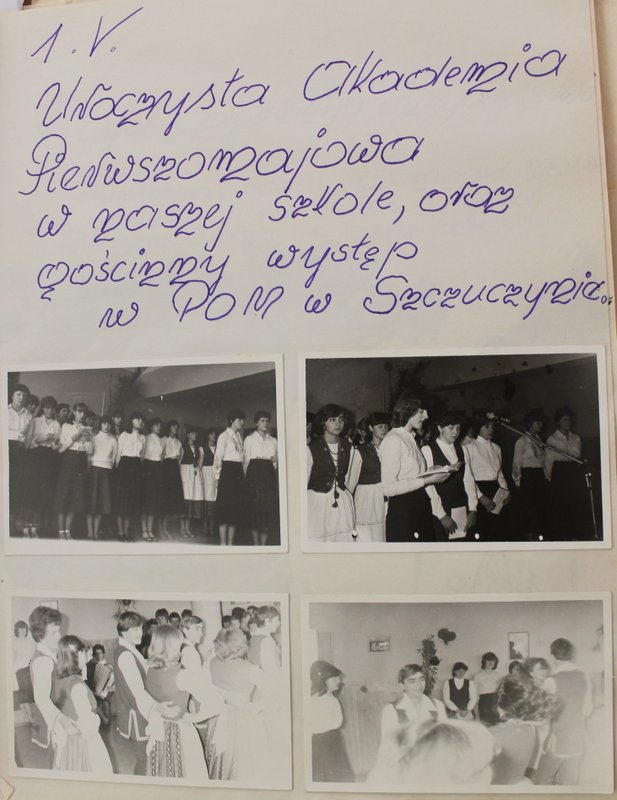 1. V.
Uroczysta Akademia
Pierwszomajowa
w naszej szkole, oraz
gościnny występ
w POM w Szczuczynie.